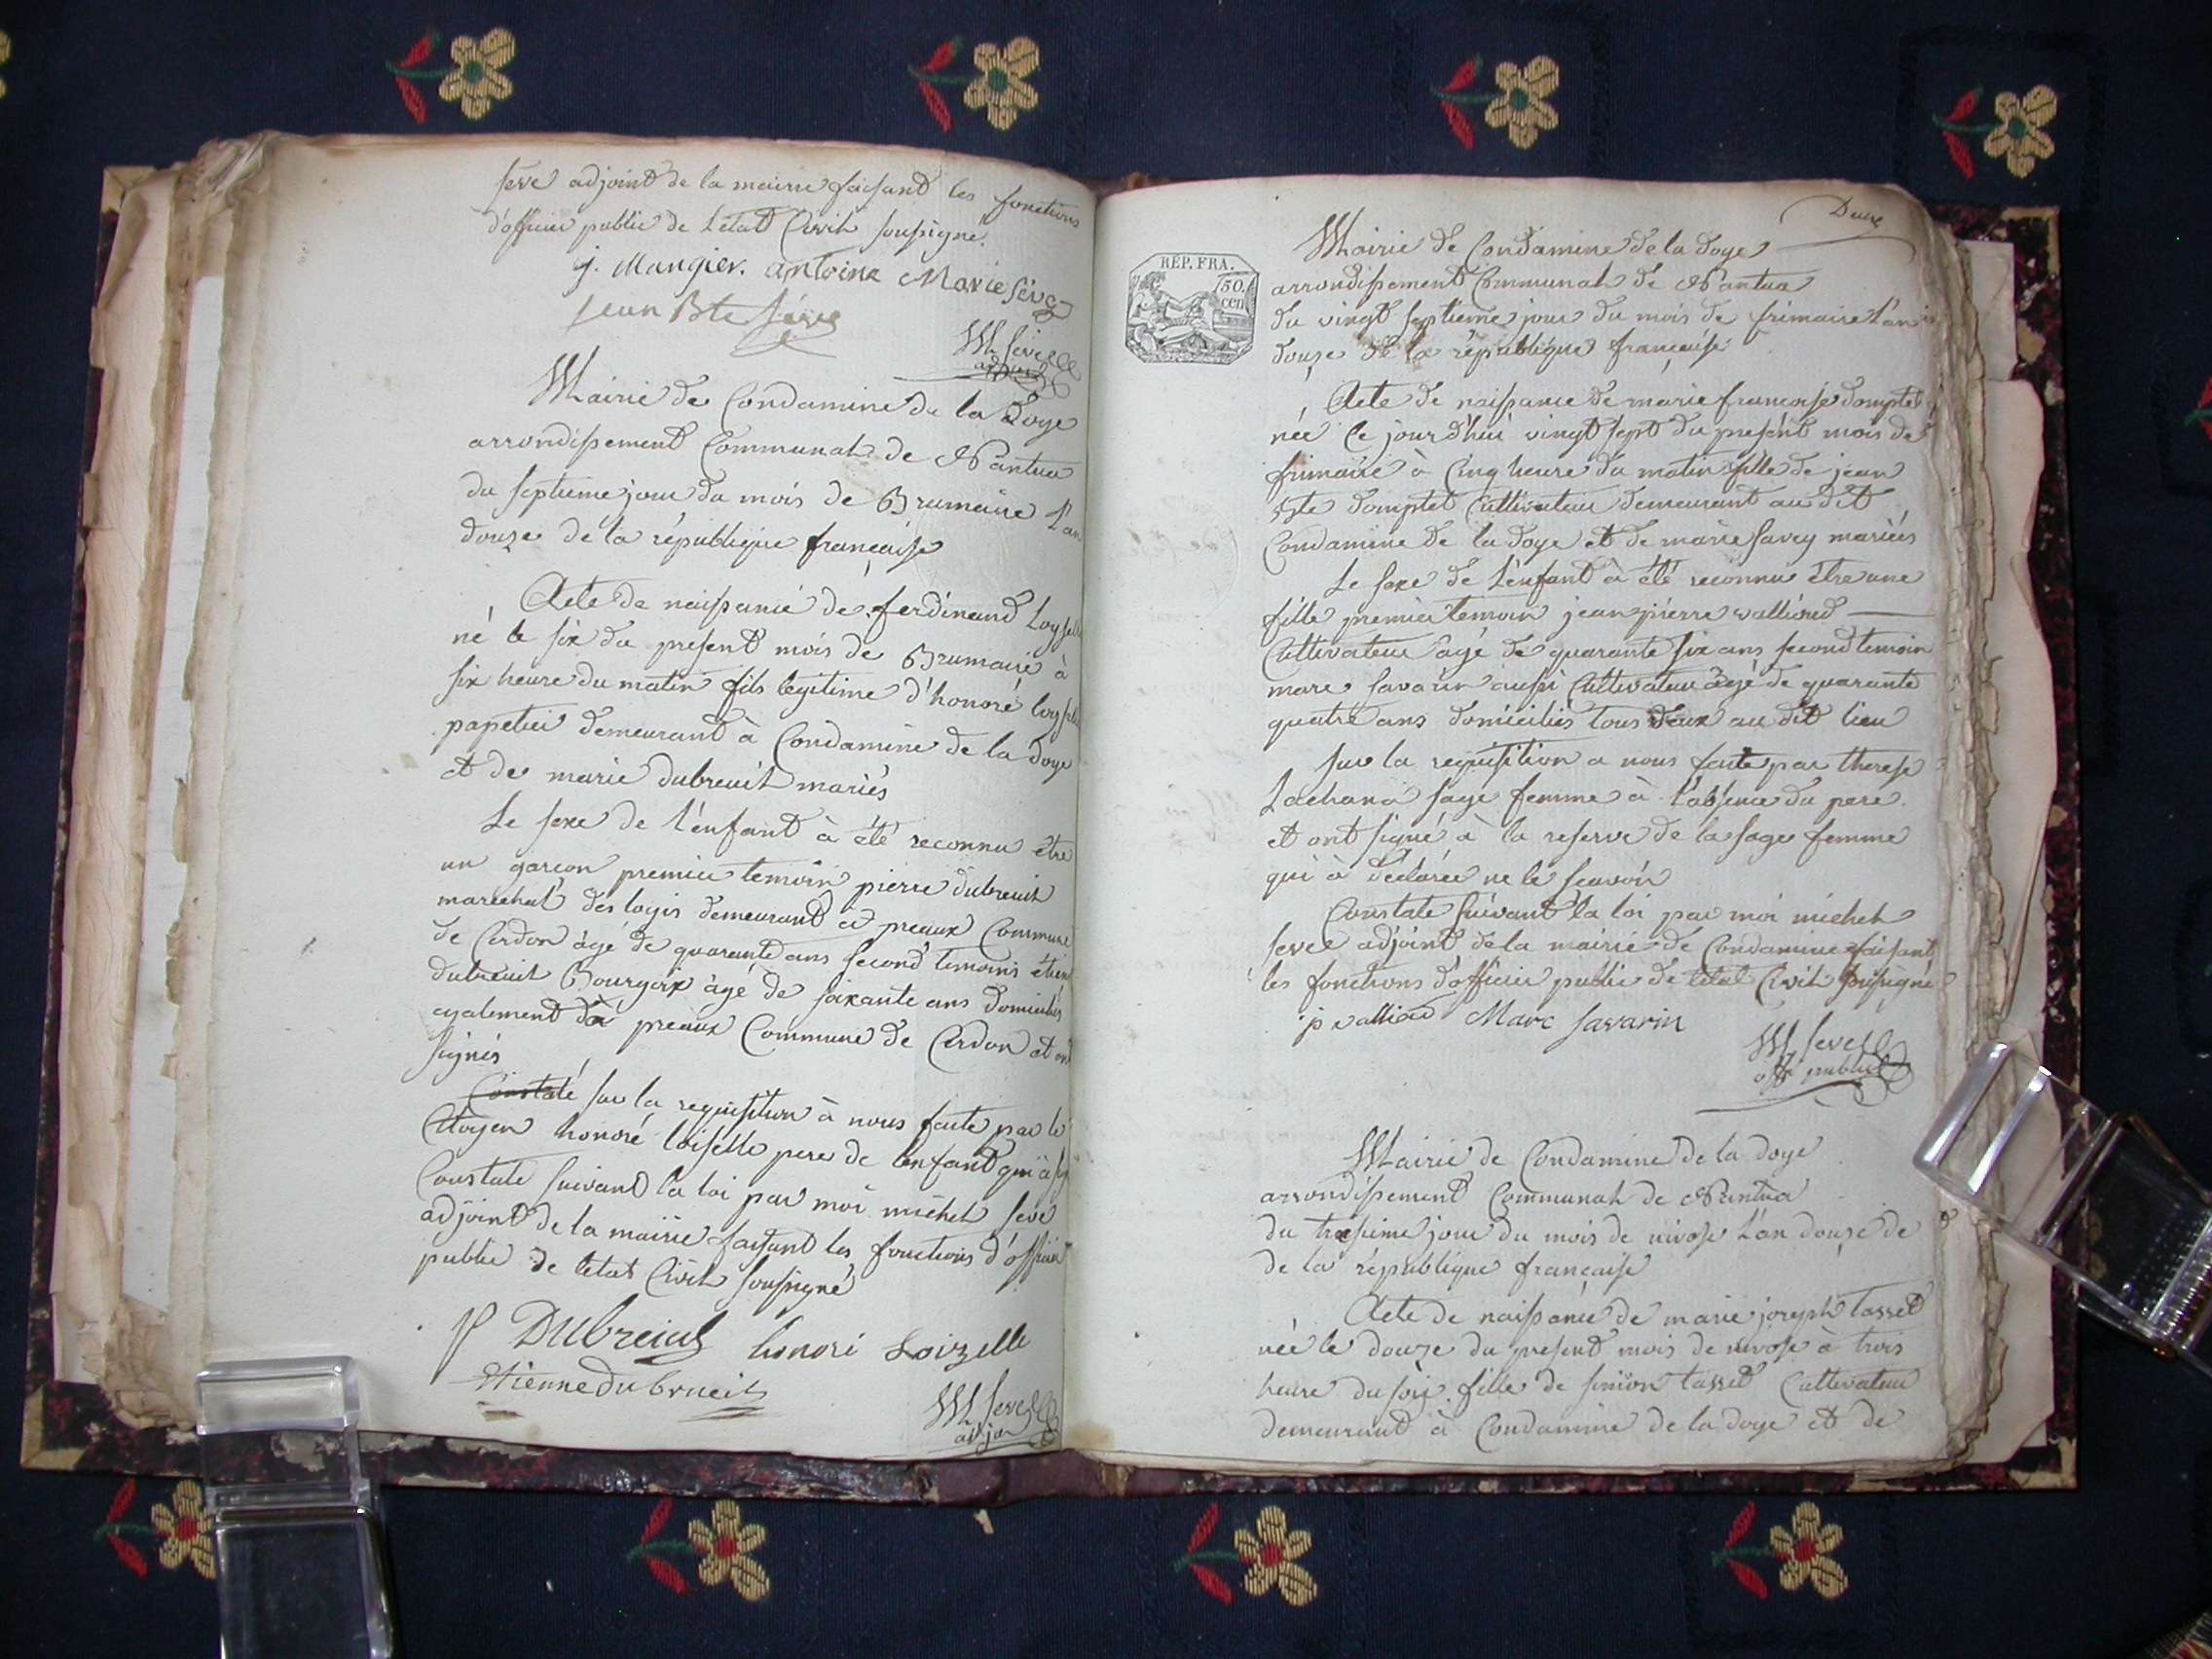 seve adjoint de la mairie faisant les fonctions
d'officier public de l'état Civil soussigné
j. Mangier. antoine Marie Séve
jean Bte Séve
M Seve
adjoint
Mairie de Condamine de la Doye
arrondissement Communal de Nantua
du septieme jour du mois de Brumaire l'an
douze de la république française
Acte de naissance de ferdinand Loyselle
né le six du present mois de Brumaire à
six heure du matin fils legitime d'honoré loyselle
papetier demeurant à Condamine de la Doye
et de marie dubreuil mariés
Le sexe de l'enfant à été reconnu être
un garcon premier temoin pierre dubreuil
marechal des logis demeurant à preaux Commune
de Cerdon âgé de quarante ans second temoins étienne
dubreuil Bourgoix âgé de soixante ans domiciliés
egalement à preaux Commune de Cerdon et ont
signés
Constaté sur la requisition à nous faite par le
Citoyen honoré loiselle pere de l'enfant qui à
Constaté suivant la loi par moi michel seve
adjoint de la mairie faisant les fonctions d'officier
public de l'etat Civil soussigné
P Dubreiul honoré Loizelle
Etienne dubrueil
M Seve
adjoin
Deux
RÉP. FRA.
50.
cen
Mairie de Condamine de la doye
arrondissement Communal de Nantua
du vingt septieme jour du mois de frimaire l'an
douze de la république française
Acte de naissance de marie francoise domptet
née le jourd'hui vingt sept du present mois de
frimaire à Cinq heure du matin fille de jean
Bte domptet Cultivateur demeurant au dit
Condamine de la doye et de marie savey mariés
Le sexe de l'enfant à été reconnu être une
fille premier temoin jean pierre vallioud
Cultivateur âgé de quarante six ans second temoin
marc savarin aussi Cultivateur âgé de quarante
quatre ans domiciliés tous deux au dit lieu
sur la requisition a nous faite par therese
Lachana sage femme à l'absence du pere
et ont signé à la reserve de la sage femme
qui à déclarée ne le scavoir
Constaté suivant la loi par moi michel
seve adjoint de la mairie de Condamine faisant
les fonctions d'officier public de l'etat Civil soussigné
jp vallioud Marc Savarin
M Seve
off public
Mairie de Condamine de la doye
arrondissement Communal de Nantua
du treisieme jour du mois de nivose l'an douze de
de la république française
Acte de naissance de marie joseph tasset
née le douze du present mois de nivose à trois
heure du soir fille de simion tasset Cultivateur
demeurant à Condamine de la doye et de